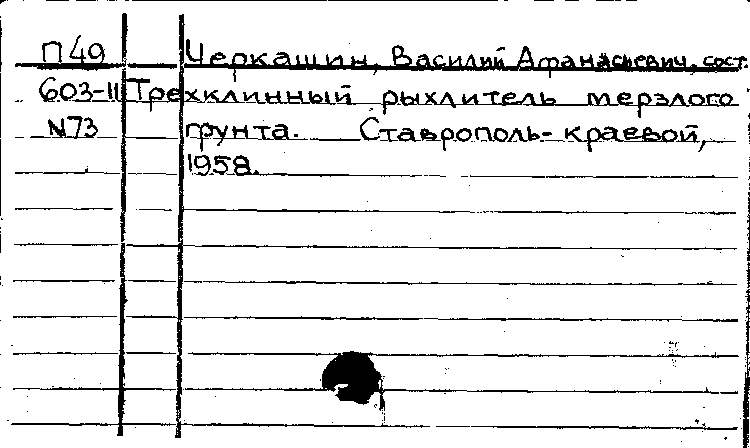 П49 Черкашин, Василий Афанасиевич, сост.
603-11 Трехклинный рыхлитель мерзлого
N73 грунта. Ставрополь-краевой,
1958.